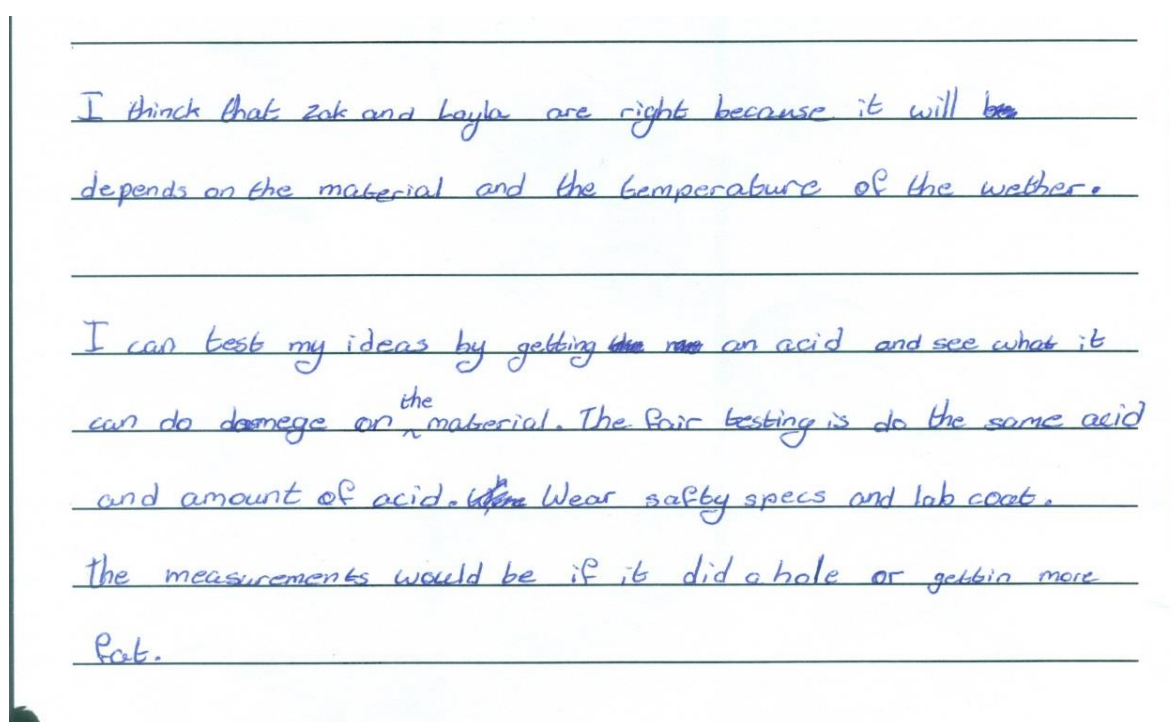 I thinck that zak and Layla are right because it will
depends on the material and the temperature of the wether.
I can test my ideas by getting an acid and see what it
can do damege on the material. The fair testing is do the same acid
and amount of acid. Wear safty specs and lab coat.
the measurements would be if it did a hole or gettin more
fat.